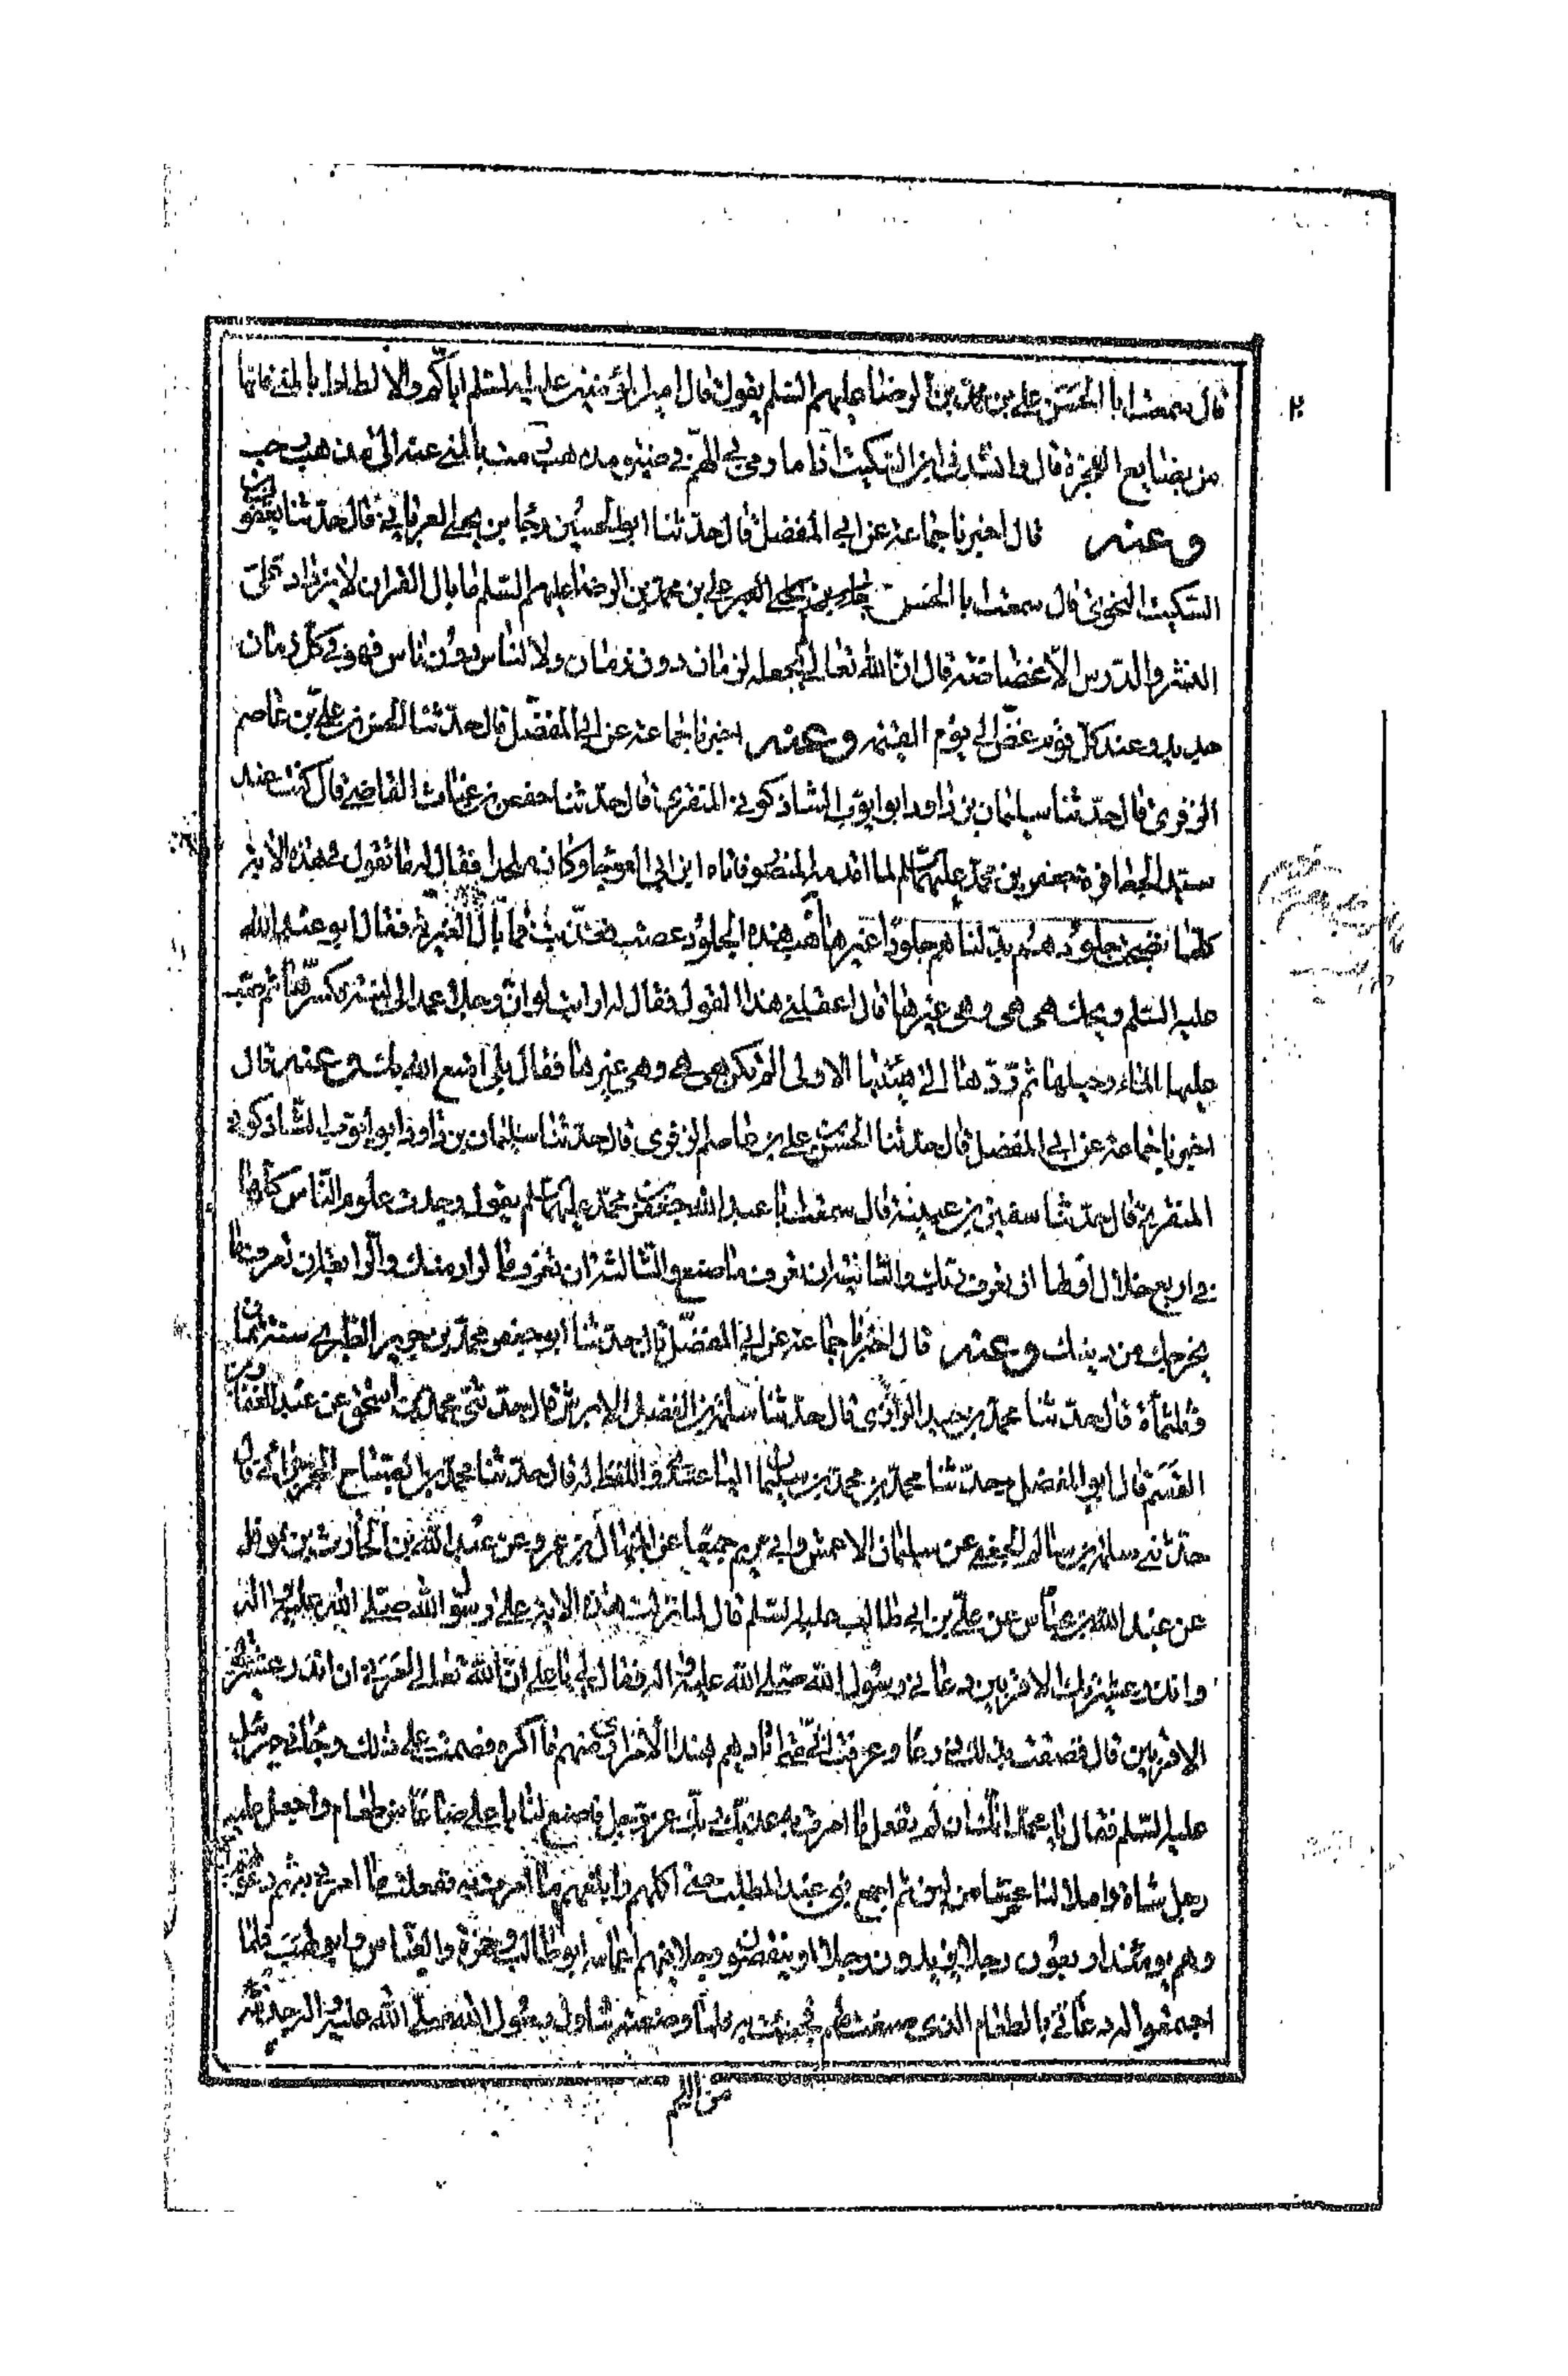 قال سمعت ابا الحسن علي بن محمد بن الرضا عليهم السلم يقول قال امير المؤمنين عليه السلم اياكم والالطاط بالمنى فانها
من بضايع العجزة قال وانشدنى ابن السكيت اذا ما رمى بى الهم فى ضيق مذهب رمت بى المنى عنه الى مذهب رحب
وعنه قال اخبرنا جماعة عن ابي المفضل قال حدثنا ابو الحسين رجا بن يحيى العبرتائي قال حدثنا يعقوب بن
السكيت النحوى قال سمعت ابا الحسن علي بن محمد بن الرضا عليهم السلم ما بال القران لا يزداد على
النشر والدرس الا غضاضة قال ان الله تعالى لم يجعله لزمان دون زمان ولا لناس دون ناس فهو فى كل زمان
جديد وعند كل قوم غض الى يوم القيمة وعنه اخبرنا جماعة عن ابى المفضل قال حدثنا الحسن بن علي بن عاصم
الزفرى قال حدثنا سليمان بن داود ابو ايوب الشاذكونى المنقرى قال حدثنا حفص بن غياث القاضي قال كنت عند
سيد الجعافرة جعفر بن محمد عليهما السلم لما اقدمه المنصور فاتاه ابن ابى العوجا وكان ملحدا فقال له ما تقول فى هذه الاية
كلما نضجت جلودهم بدلناهم جلودا غيرها هب هذه الجلود عصت فعذبت فما بال الغيرية فقال ابو عبد الله
عليه السلم ويحك هى هى وهى غيرها قال اعقلنى هذا القول فقال له ارايت لو ان رجلا عمد الى لبنة فكسرها ثم صب
عليها الماء وجبلها ثم ردها الى هيئتها الاولى الم تكن هى هى وهى غيرها فقال بلى امتع الله بك وعنه قال
اخبرنا جماعة عن ابى المفضل قال حدثنا الحسن بن علي بن عاصم الزفرى قال حدثنا سليمان بن داود ابو ايوب الشاذكونى
المنقرى قال حدثنا سفين بن عيينة قال سمعت ابا عبد الله جعفر بن محمد عليهما السلم يقول وجدت علوم الناس كلها
فى اربع خلال اولها ان تعرف ربك والثانية ان تعرف ما صنع والثالثة ان تعرف ما اراد منك والرابعة ان تعرف ما
يخرجك من دينك وعنه قال اخبرنا جماعة عن ابى المفضل قال حدثنا ابو جعفر محمد بن جرير الطبرى سنة ثمان
وثلثمأة قال حدثنا محمد بن حميد الرازى قال حدثنا سلمة بن الفضل الابرش قال حدثنى محمد بن اسحق عن عبد الغفار بن
القسم قال ابو المفضل وحدثنا محمد بن محمد بن سليمان الباغندى واللفظ له قال حدثنا محمد بن الصباح الجرجرائى قال
حدثنى سلمة بن سالم الجعفى عن سليمان الاعمش وابى مريم جميعا عن المنهال بن عمرو عن عبد الله بن الحارث بن نوفل
عن عبد الله بن عباس عن علي بن ابى طالب عليه السلم قال لما نزلت هذه الاية على رسول الله صلى الله عليه واله
وانذر عشيرتك الاقربين دعانى رسول الله صلى الله عليه واله فقال لى يا علي ان الله تعالى امرنى ان انذر عشيرتى
الاقربين قال فضقت بذلك ذرعا وعرفت انى متى اباديهم بهذا الامر ارى منهم ما اكره فصمت على ذلك وجاءنى جبرئيل
عليه السلم فقال يا محمد انك ان لم تفعل ما امرت به عذبك ربك عز وجل فاصنع لنا يا علي صاعا من طعام واجعل عليه
رجل شاة واملا لنا عسا من لبن ثم اجمع بنى عبد المطلب حتى اكلمهم وابلغهم ما امرت به ففعلت ما امرنى به ثم دعوتهم
وهم يومئذ اربعون رجلا يزيدون رجلا او ينقصون رجلا فيهم اعمامه ابو طالب وحمزة والعباس وابو لهب فلما
اجتمعوا له دعانى بالطعام الذى صنعت لهم فجئت به فلما وضعته تناول رسول الله صلى الله عليه واله جذبة
من اللحم